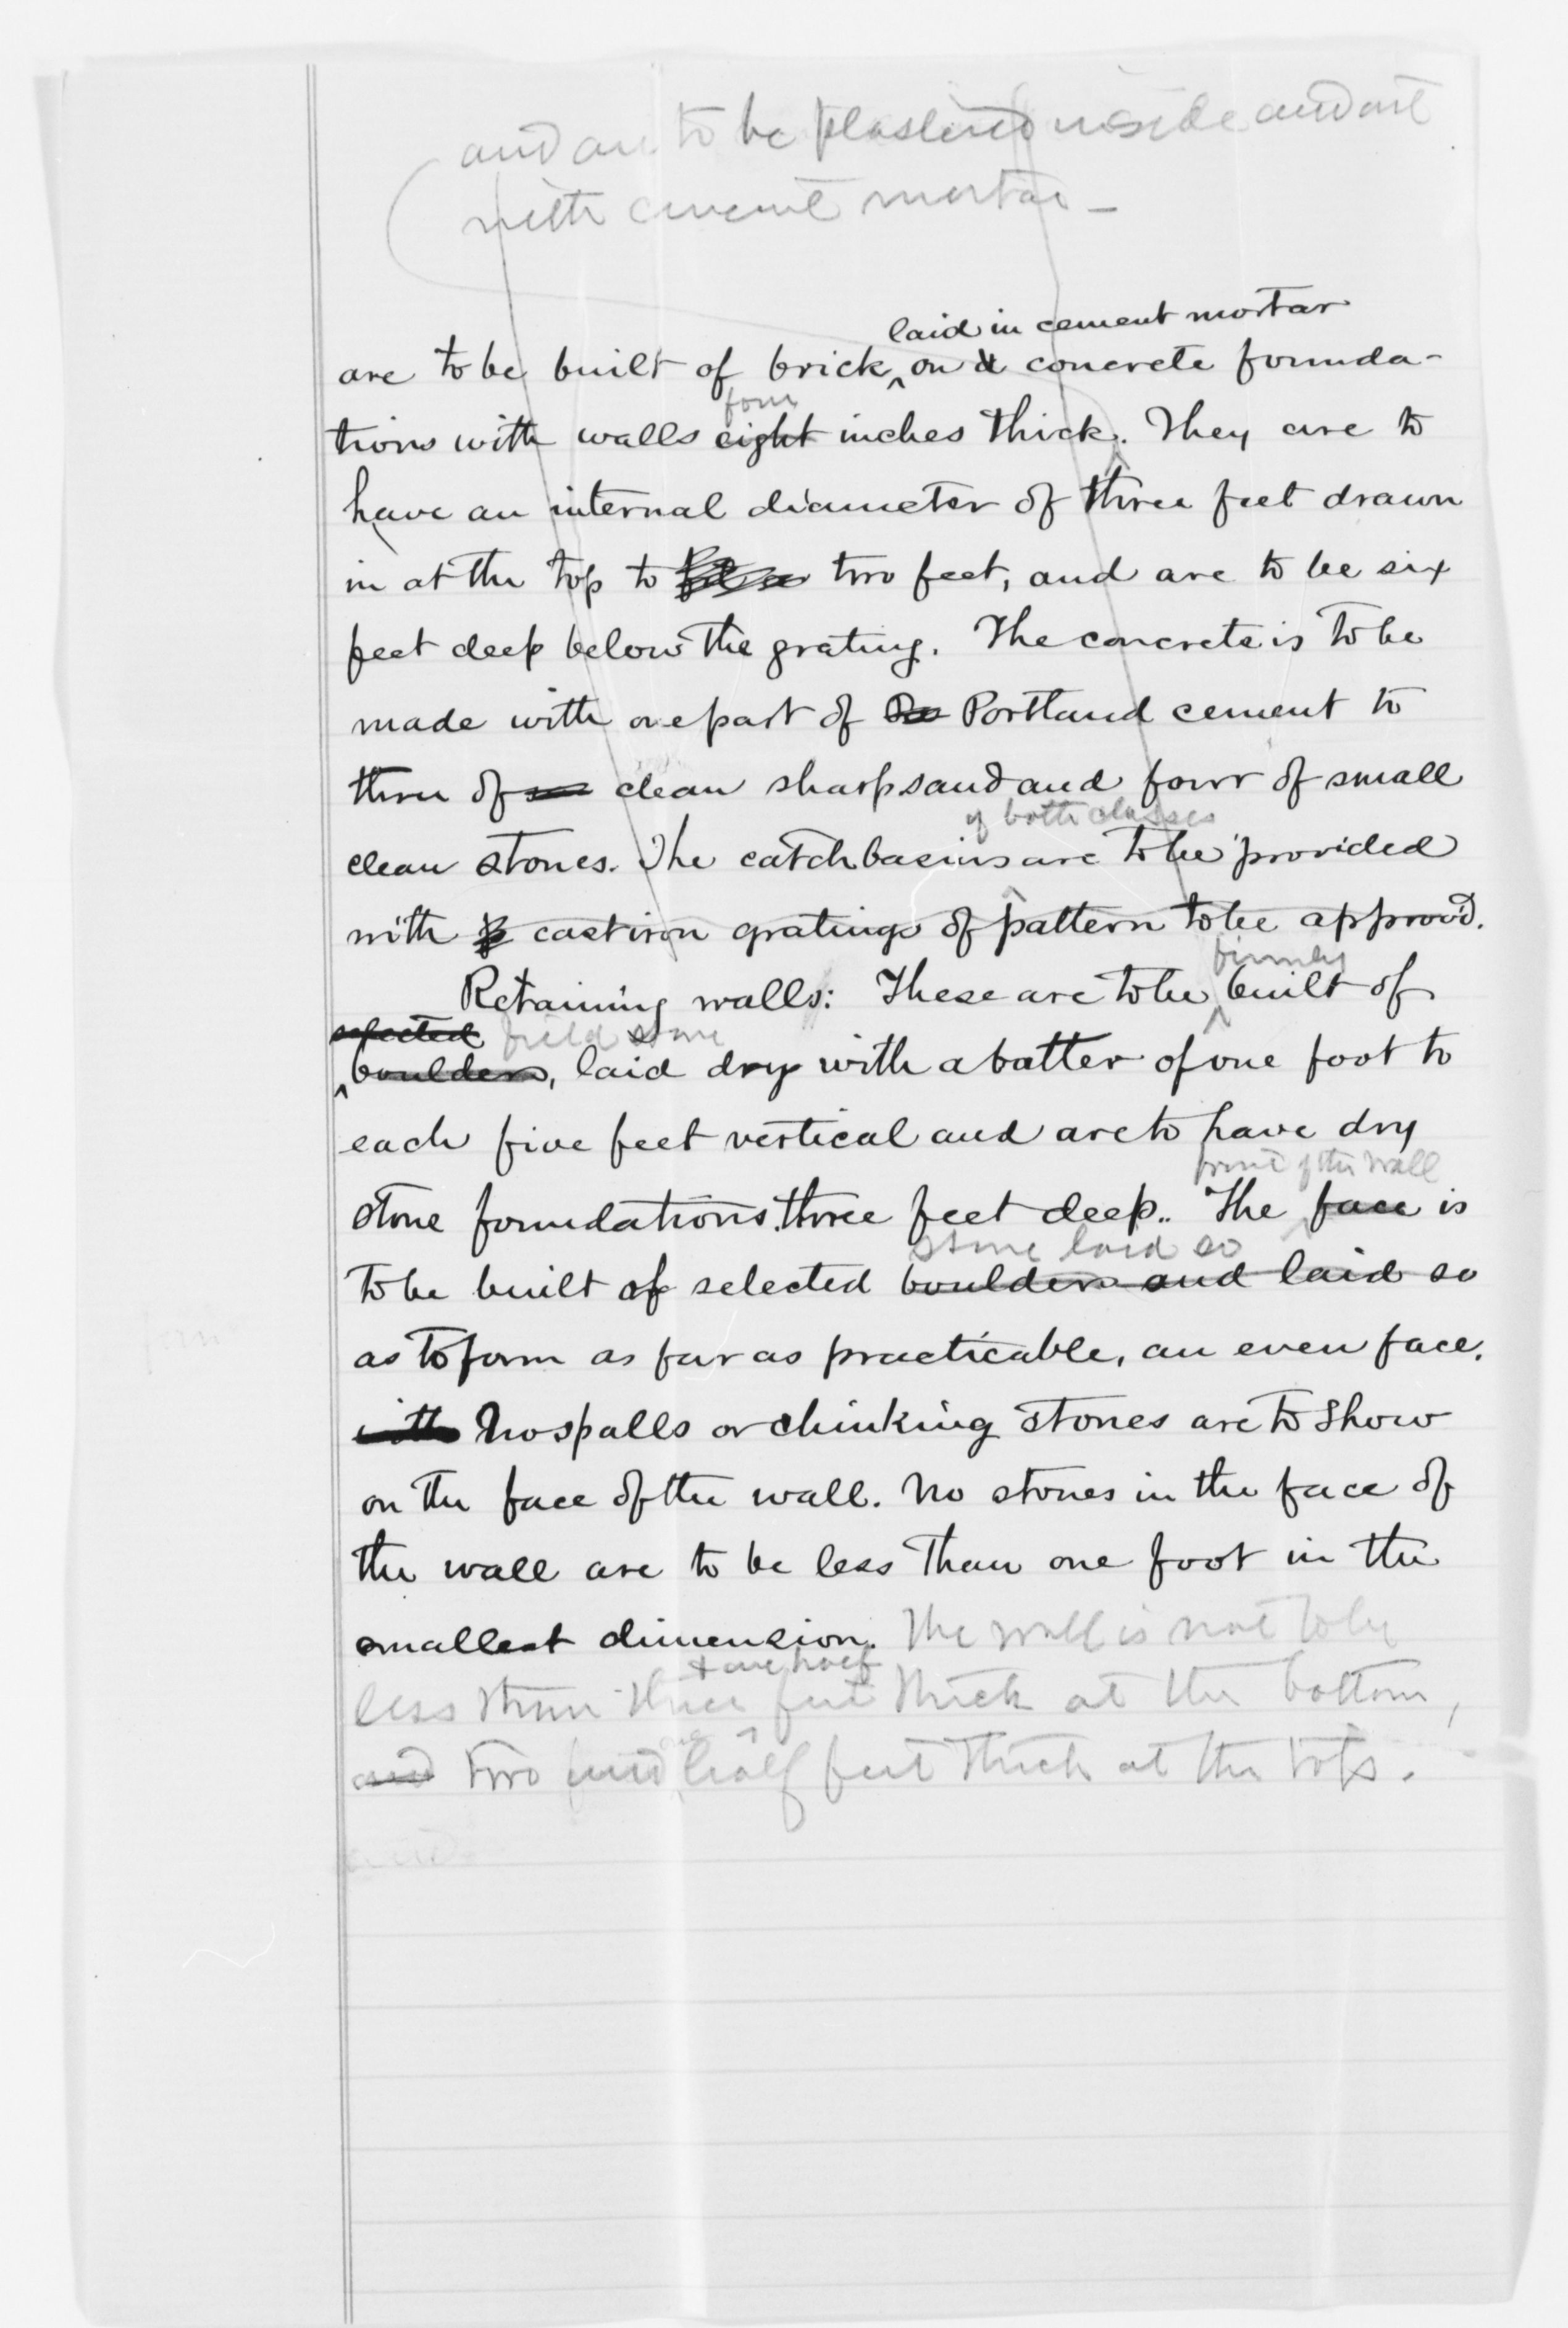 and are to be plastered inside and out
with cement mortar —
laid in cement mortar
are to be built of brick on a concrete founda-
four
tions with walls eight inches thick. They are to
have an internal diameter of three feet drawn
in at the top to two feet, and are to be six
feet deep below the grating. The concrete is to be
made with one part of Portland cement to
three of clean sharp sand and four of small
of both classes
clean stones. The catch basins are to be provided
with cast iron gratings of pattern to be approv'd.
firmly
Retaining walls: These are to be built of
selected field stone
boulders, laid dry with a batter of one foot to
each five feet vertical and are to have dry
front of the wall
stone foundations three feet deep. The face is
stone laid so
to be built of selected boulders and laid so
as to form as far as practicable, an even face.
with No spalls or chinking stones are to show
on the face of the wall. No stones in the face of
the wall are to be less than one foot in the
smallest dimension. The wall is not to be
& one half
less than three feet thick at the bottom,
one
and two and half feet thick at the top.
and